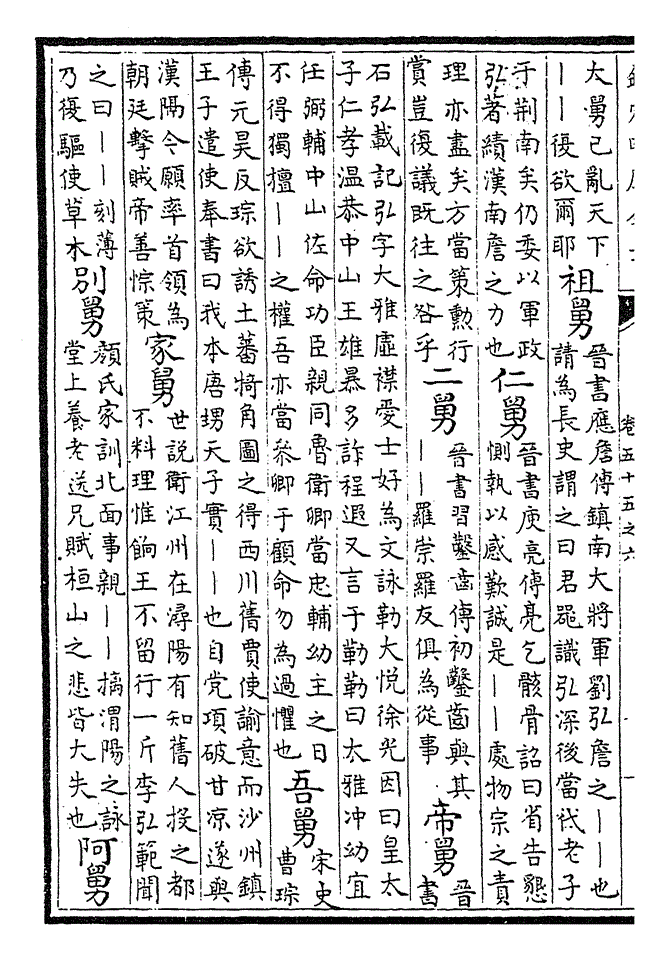 卷五十五之六
大舅已亂天下
——復欲爾耶
祖舅
晉書應詹傳鎮南大將軍劉弘詹之——也
請為長史謂之曰君器識弘深後當代老子
于荆南矣仍委以軍政
弘著績漢南詹之力也
仁舅
晉書庾亮傳亮乞骸骨詔曰省告懇
惻執以感歎誠是——處物宗之責
理亦盡矣方當策勲行
賞豈復議既往之咎乎
二舅
晉書習鑿齒傳初鑿齒與其
——羅崇羅友俱為從事
帝舅
晉
書
石弘載記弘字大雅虛襟愛士好為文詠勒大悅徐光因曰皇太
子仁孝温恭中山王雄暴多詐程遐又言于勒勒曰大雅冲幼宜
任弼輔中山佐命功臣親同魯衛卿當忠輔幼主之日
不得獨擅——之權吾亦當叅卿于顧命勿為過懼也
吾舅
宋史
曹琮
傳元昊反琮欲誘土蕃犄角圖之得西川舊賈使諭意而沙州鎮
王子遣使奉書曰我本唐甥天子實——也自党項破甘凉遂與
漢隔今願率首領為
朝廷擊賊帝善悰策
家舅
世說衛江州在潯陽有知舊人投之都
不料理惟餉王不留行一斤李弘範聞
之曰——刻薄
乃復驅使草木
別舅
顏氏家訓北面事親——摛渭陽之詠
堂上養老送兄賦桓山之悲皆大失也
阿舅